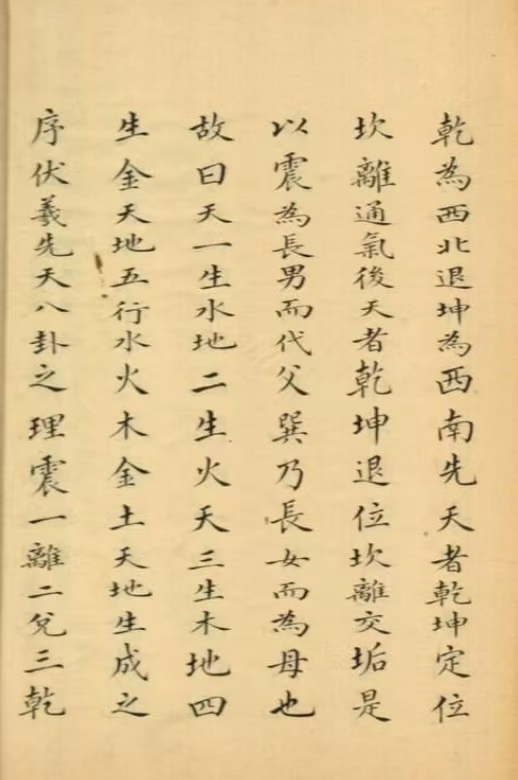 乾為西北退坤為西南先天者乾坤定位
坎離通氣後天者乾坤退位坎離交垢是
以震為長男而代父巽乃長女而為母也
故曰天一生水地二生火天三生木地四
生金天地五行水火木金土天地生成之
序伏羲先天八卦之理震一離二兌三乾